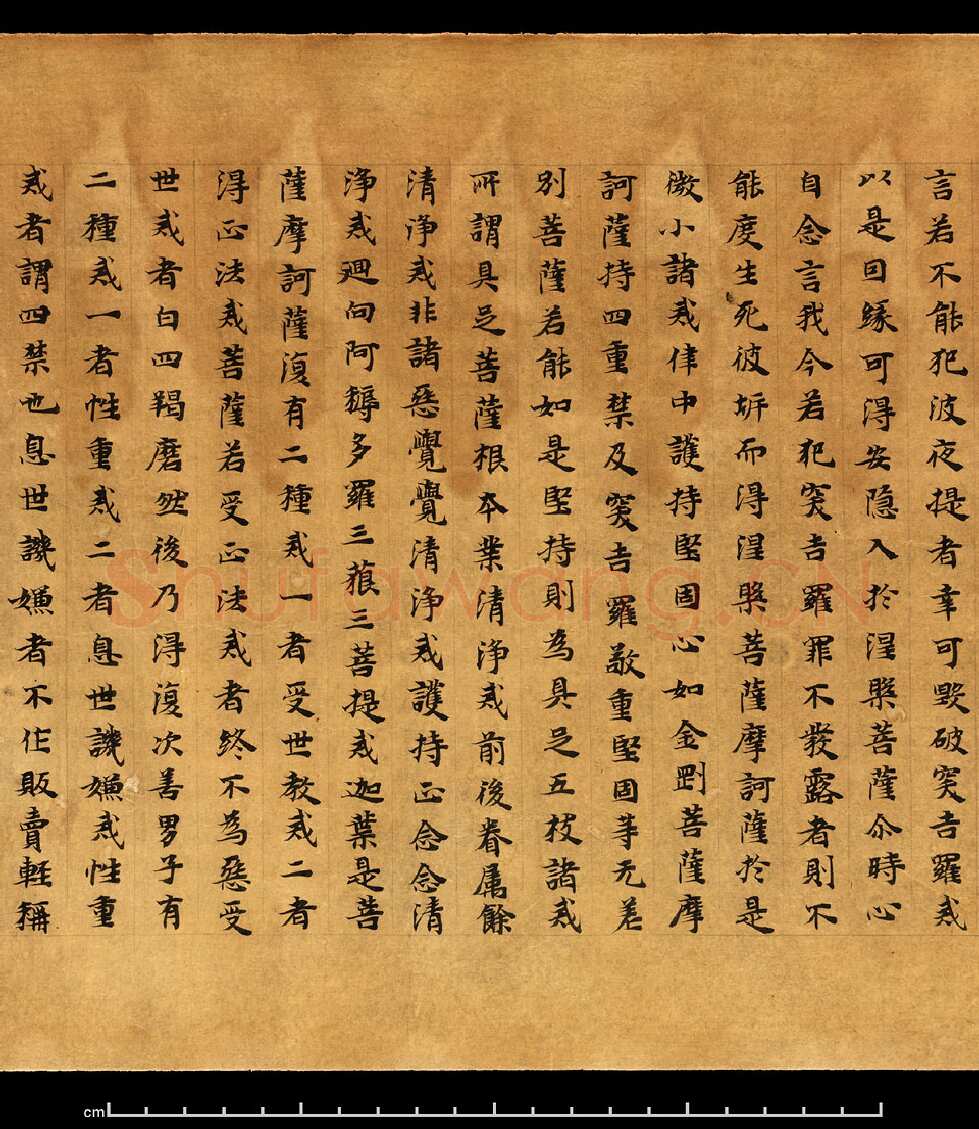 言若不能犯波夜提者幸可毀破突吉羅戒
以是因緣可得安隱入於涅槃菩薩尒時心
自念言我今若犯突吉羅罪不發露者則不
能度生死彼岸而得涅槃菩薩摩訶薩於是
微小諸戒律中護持堅固心如金剛菩薩摩
訶薩持四重禁及突吉羅敬重堅固等无差
別菩薩若能如是堅持則為具足五枝諸戒
所謂具足菩薩根本業清淨戒前後眷屬餘
清淨戒非諸惡覺覺清淨戒護持正念念清
淨戒迴向阿耨多羅三藐三菩提戒迦葉是菩
薩摩訶薩復有二種戒一者受世教戒二者
得正法戒菩薩若受正法戒者終不為惡受
世戒者白四羯磨然後乃得復次善男子有
二種戒一者性重戒二者息世譏嫌戒性重
戒者謂四禁也息世譏嫌者不作販賣輕稱
Shufawang.CN
cm